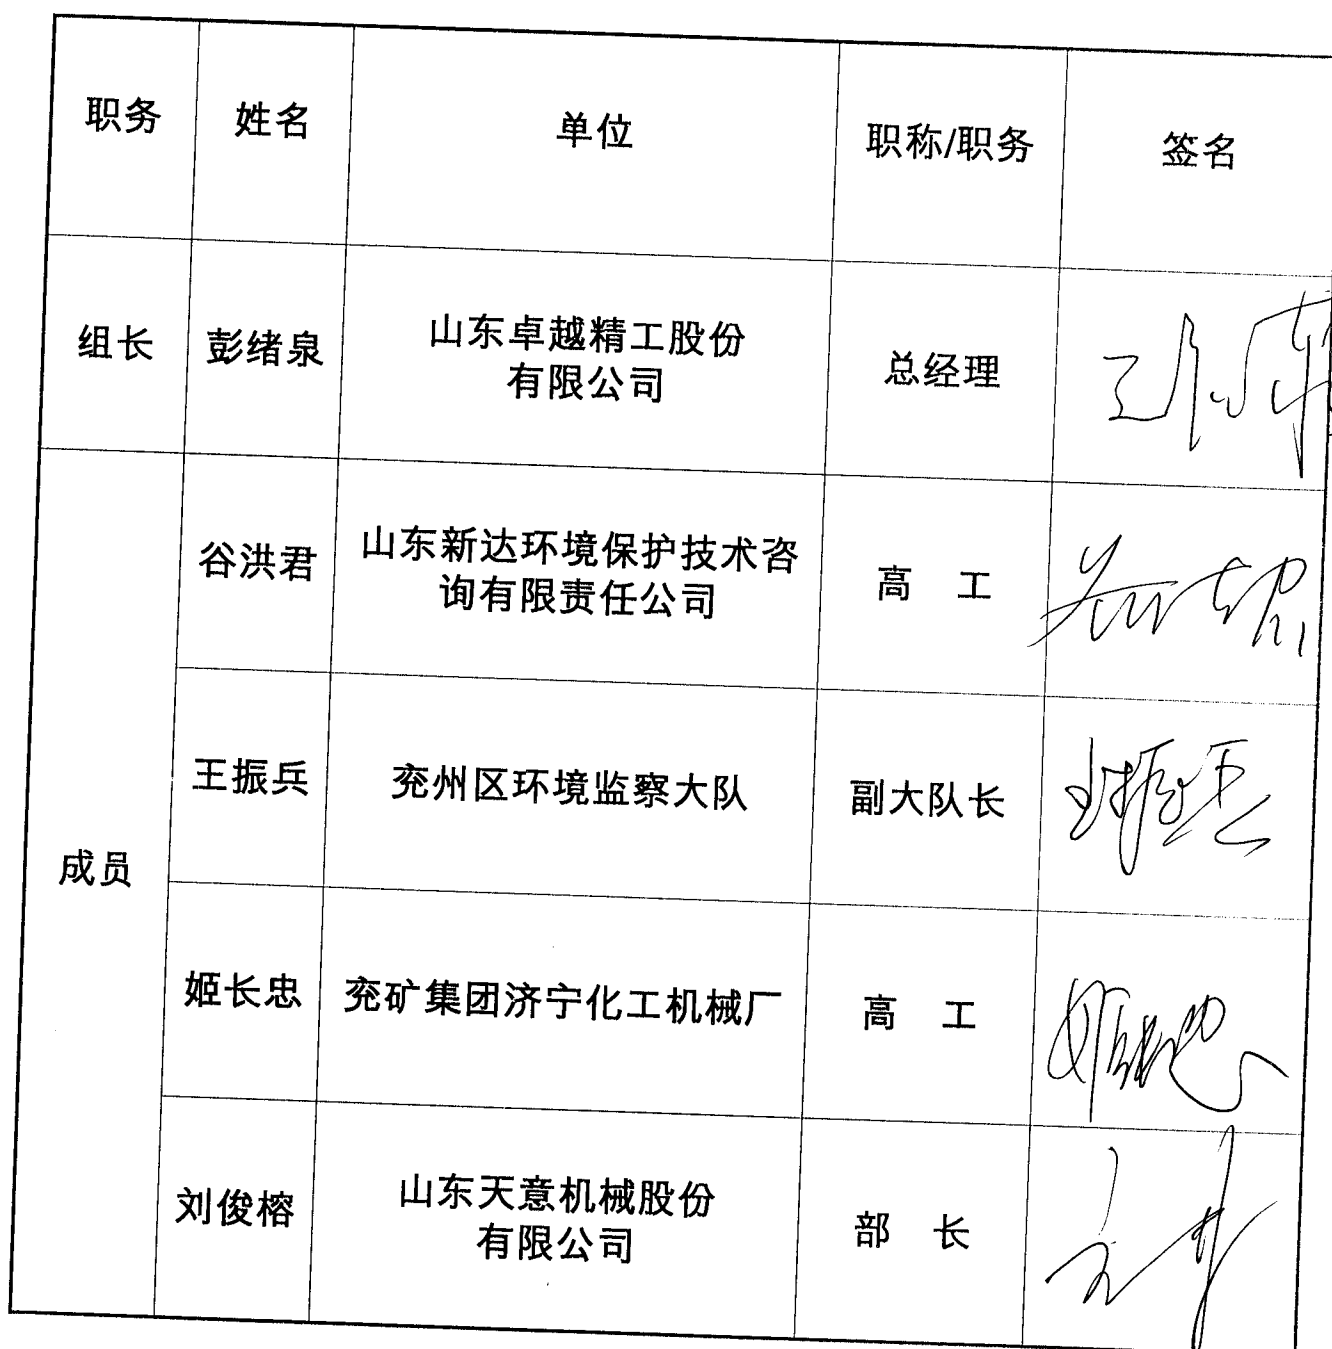 职务 姓名 单位 职称/职务 签名
组长 彭绪泉 山东卓越精工股份 总经理
有限公司
成员
谷洪君 山东新达环境保护技术咨 高 工
询有限责任公司
王振兵 兖州区环境监察大队 副大队长 王振兵
姬长忠 兖矿集团济宁化工机械厂 高 工 姬长忠
刘俊榕 山东天意机械股份 部 长
有限公司